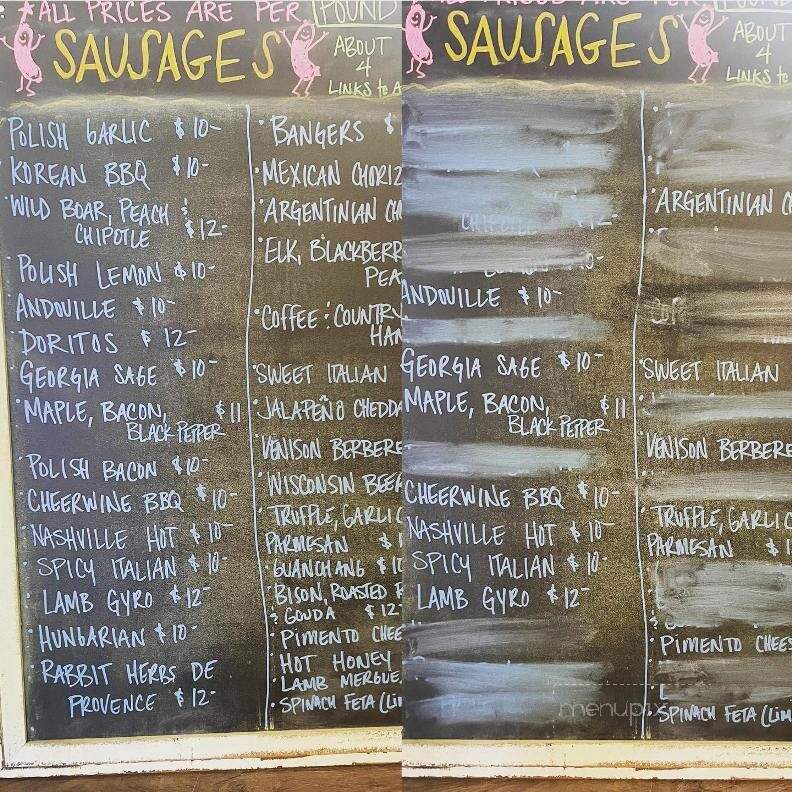 ALL PRICES ARE PER POUND
SAUSAGES
ABOUT
4
LINKS to A
POLISH GARLIC $10-
KOREAN BBQ $10-
WILD BOAR, PEACH &
CHIPOTLE $12-
POLISH LEMON $10-
ANDOUILLE $10-
DORITOS $12-
GEORGIA SAGE $10-
MAPLE, BACON, $11
BLACK PEPPER
POLISH BACON $10-
CHEERWINE BBQ $10-
NASHVILLE HOT $10-
SPICY ITALIAN $10-
LAMB GYRO $12-
HUNGARIAN $10-
RABBIT HERBS DE
PROVENCE $12-
BANGERS $
MEXICAN CHORIZ
ARGENTINIAN CH
ELK, BLACKBERR
PEA
COFFEE & COUNTRY
HAM
SWEET ITALIAN
JALAPEÑO CHEDDA
VENISON BERBERE
WISCONSIN BEER
TRUFFLE, GARLIC
PARMESAN $
GUANCHANG $10
BISON, ROASTED
& GOUDA $12
PIMENTO CHEE
HOT HONEY
LAMB MERGUE
SPINACH FETA (LIM
SAUSAGES
ABOUT
4
LINKS to
CHIPOTLE
ANDOUILLE $10-
GEORGIA SAGE $10-
MAPLE, BACON, $11
BLACK PEPPER
CHEERWINE BBQ $10-
NASHVILLE HOT $10-
SPICY ITALIAN $10-
LAMB GYRO $12-
ARGENTINIAN C
SWEET ITALIAN
VENISON BERBERE
TRUFFLE, GARLIC
PARMESAN $1
PIMENTO CHEES
SPINACH FETA (LIM
menupix